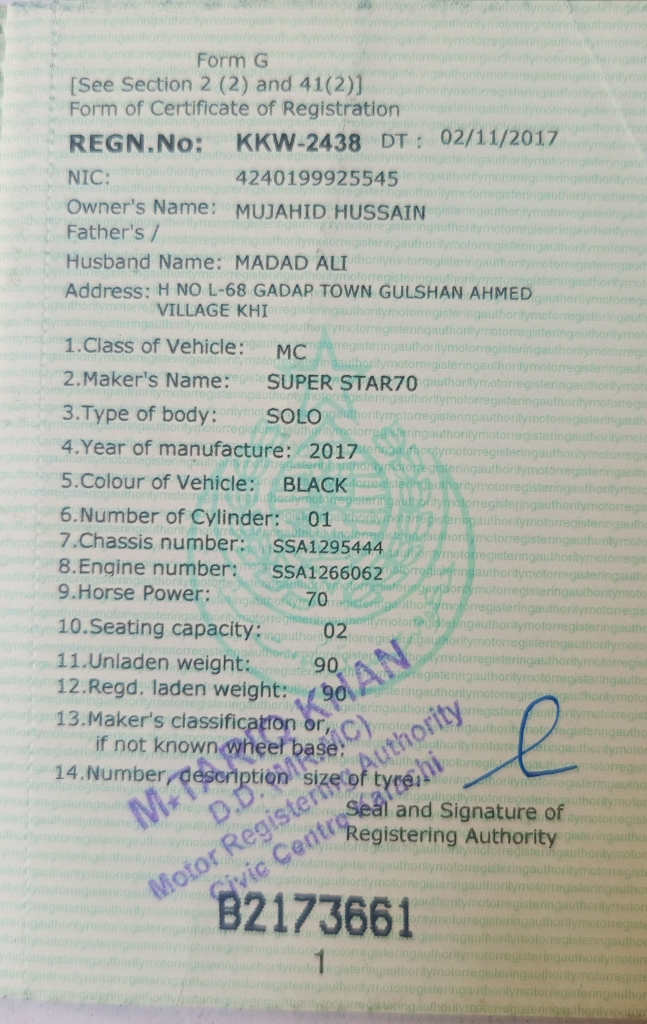 Form G
[See Section 2 (2) and 41(2)]
Form of Certificate of Registration
REGN.No: KKW-2438 DT : 02/11/2017
NIC: 4240199925545
Owner's Name: MUJAHID HUSSAIN
Father's /
Husband Name: MADAD ALI
Address: H NO L-68 GADAP TOWN GULSHAN AHMED
VILLAGE KHI
1.Class of Vehicle: MC
2.Maker's Name: SUPER STAR70
3.Type of body: SOLO
4.Year of manufacture: 2017
5.Colour of Vehicle: BLACK
6.Number of Cylinder: 01
7.Chassis number: SSA1295444
8.Engine number: SSA1266062
9.Horse Power: 70
10.Seating capacity: 02
11.Unladen weight: 90
12.Regd. laden weight: 90
13.Maker's classification or,
if not known wheel base:
14.Number, description size of tyre:-
M.TARIQ KHAN
D.D.
Motor Registering Authority
Civic Centre Karachi
Seal and Signature of
Registering Authority
B2173661
1